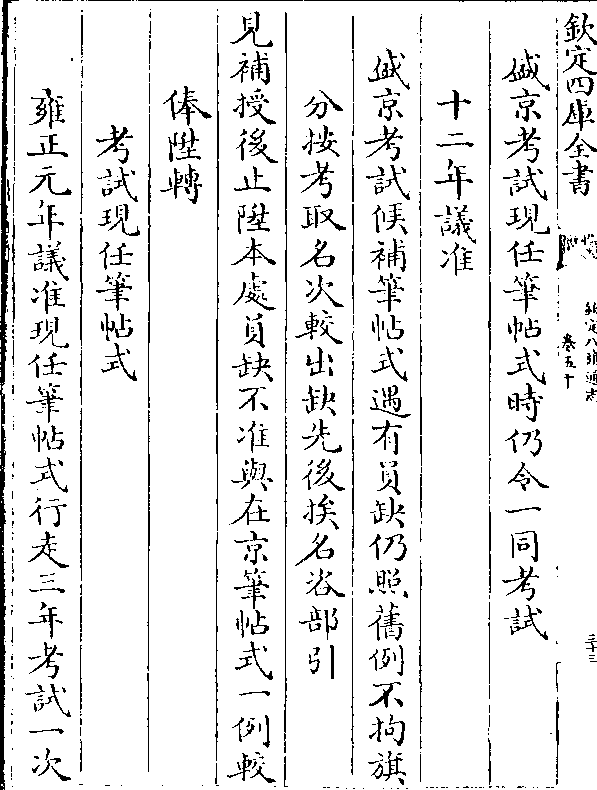 欽定四庫全書
欽定八旗通志
卷五十
三十三
盛京考試現任筆帖式時仍令一同考試
十二年議准
盛京考試候補筆帖式遇有員缺仍照舊例不拘旗
分按考取名次較出缺先後挨名咨部引
見補授後止陞本處員缺不准與在京筆帖式一例較
俸陞轉
考試現任筆帖式
雍正元年議准現任筆帖式行走三年考試一次